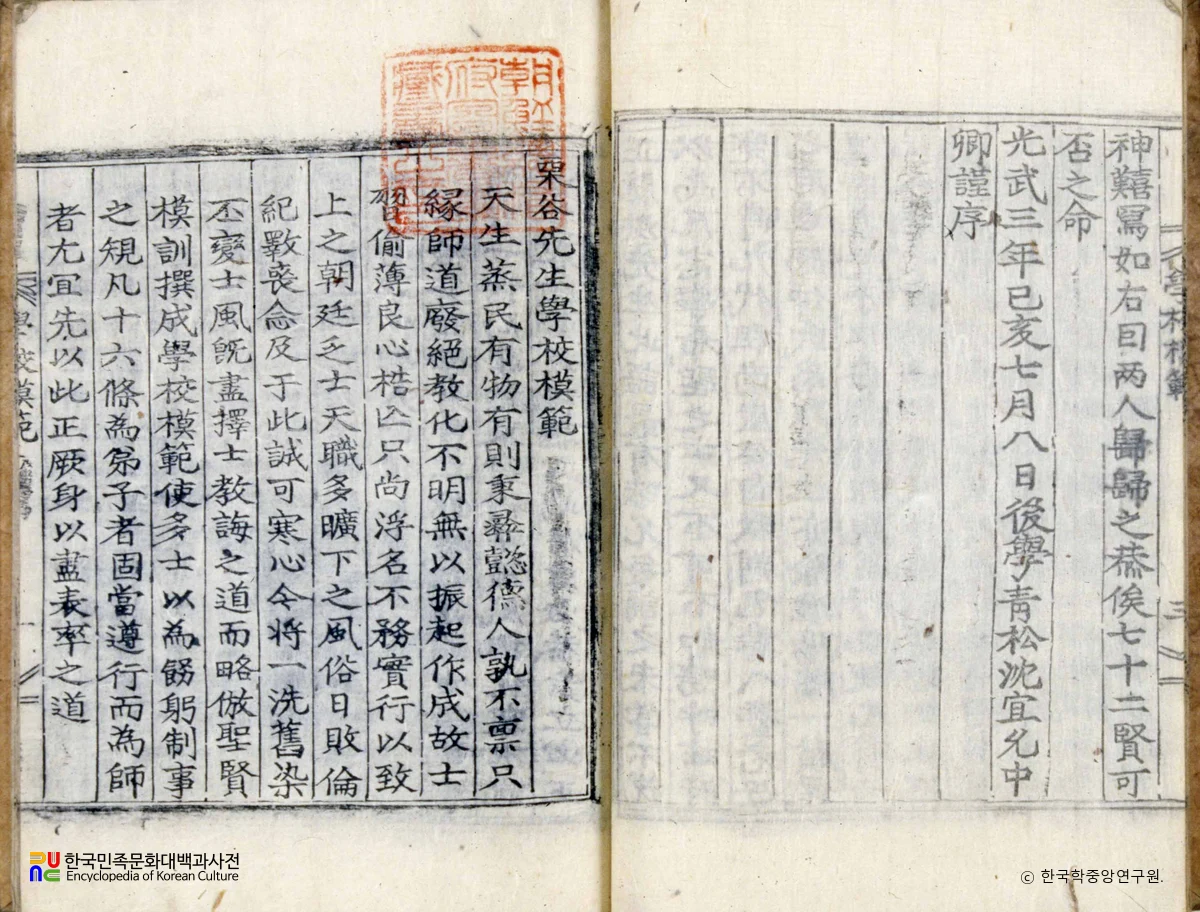 神囏寫如右目两人歸歸之恭俟七十二賢可
否之命
光武三年已亥七月八日後學靑松沈宜允中
卿謹序
學校模範
三
栗谷先生學校模範
天生蒸民有物有則秉彛懿德人孰不禀只
縁師道廢絕教化不明無以振起作成故士
習偷薄良心梏亾只尚浮名不務實行以致
上之朝廷乏士天職多曠下之風俗日敗倫
紀斁喪念及于此誠可寒心今將一洗舊染
丕變士風旣盡擇士教誨之道而略倣聖賢
模訓撰成學校模範使多士以為飭躬制事
之䂓凡十六條為弟子者固當遵行而為師
者尤宜先以此正厥身以盡表率之道
學校模範
一
한국민족문화대백과사전
Encyclopedia of Korean Culture
ⓒ 한국학중앙연구원.